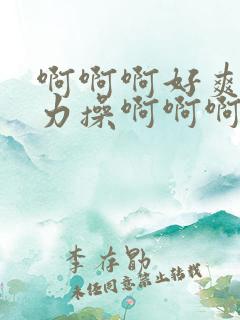 啊啊啊好爽
力操啊啊啊
李存勖
未经同意禁止转载